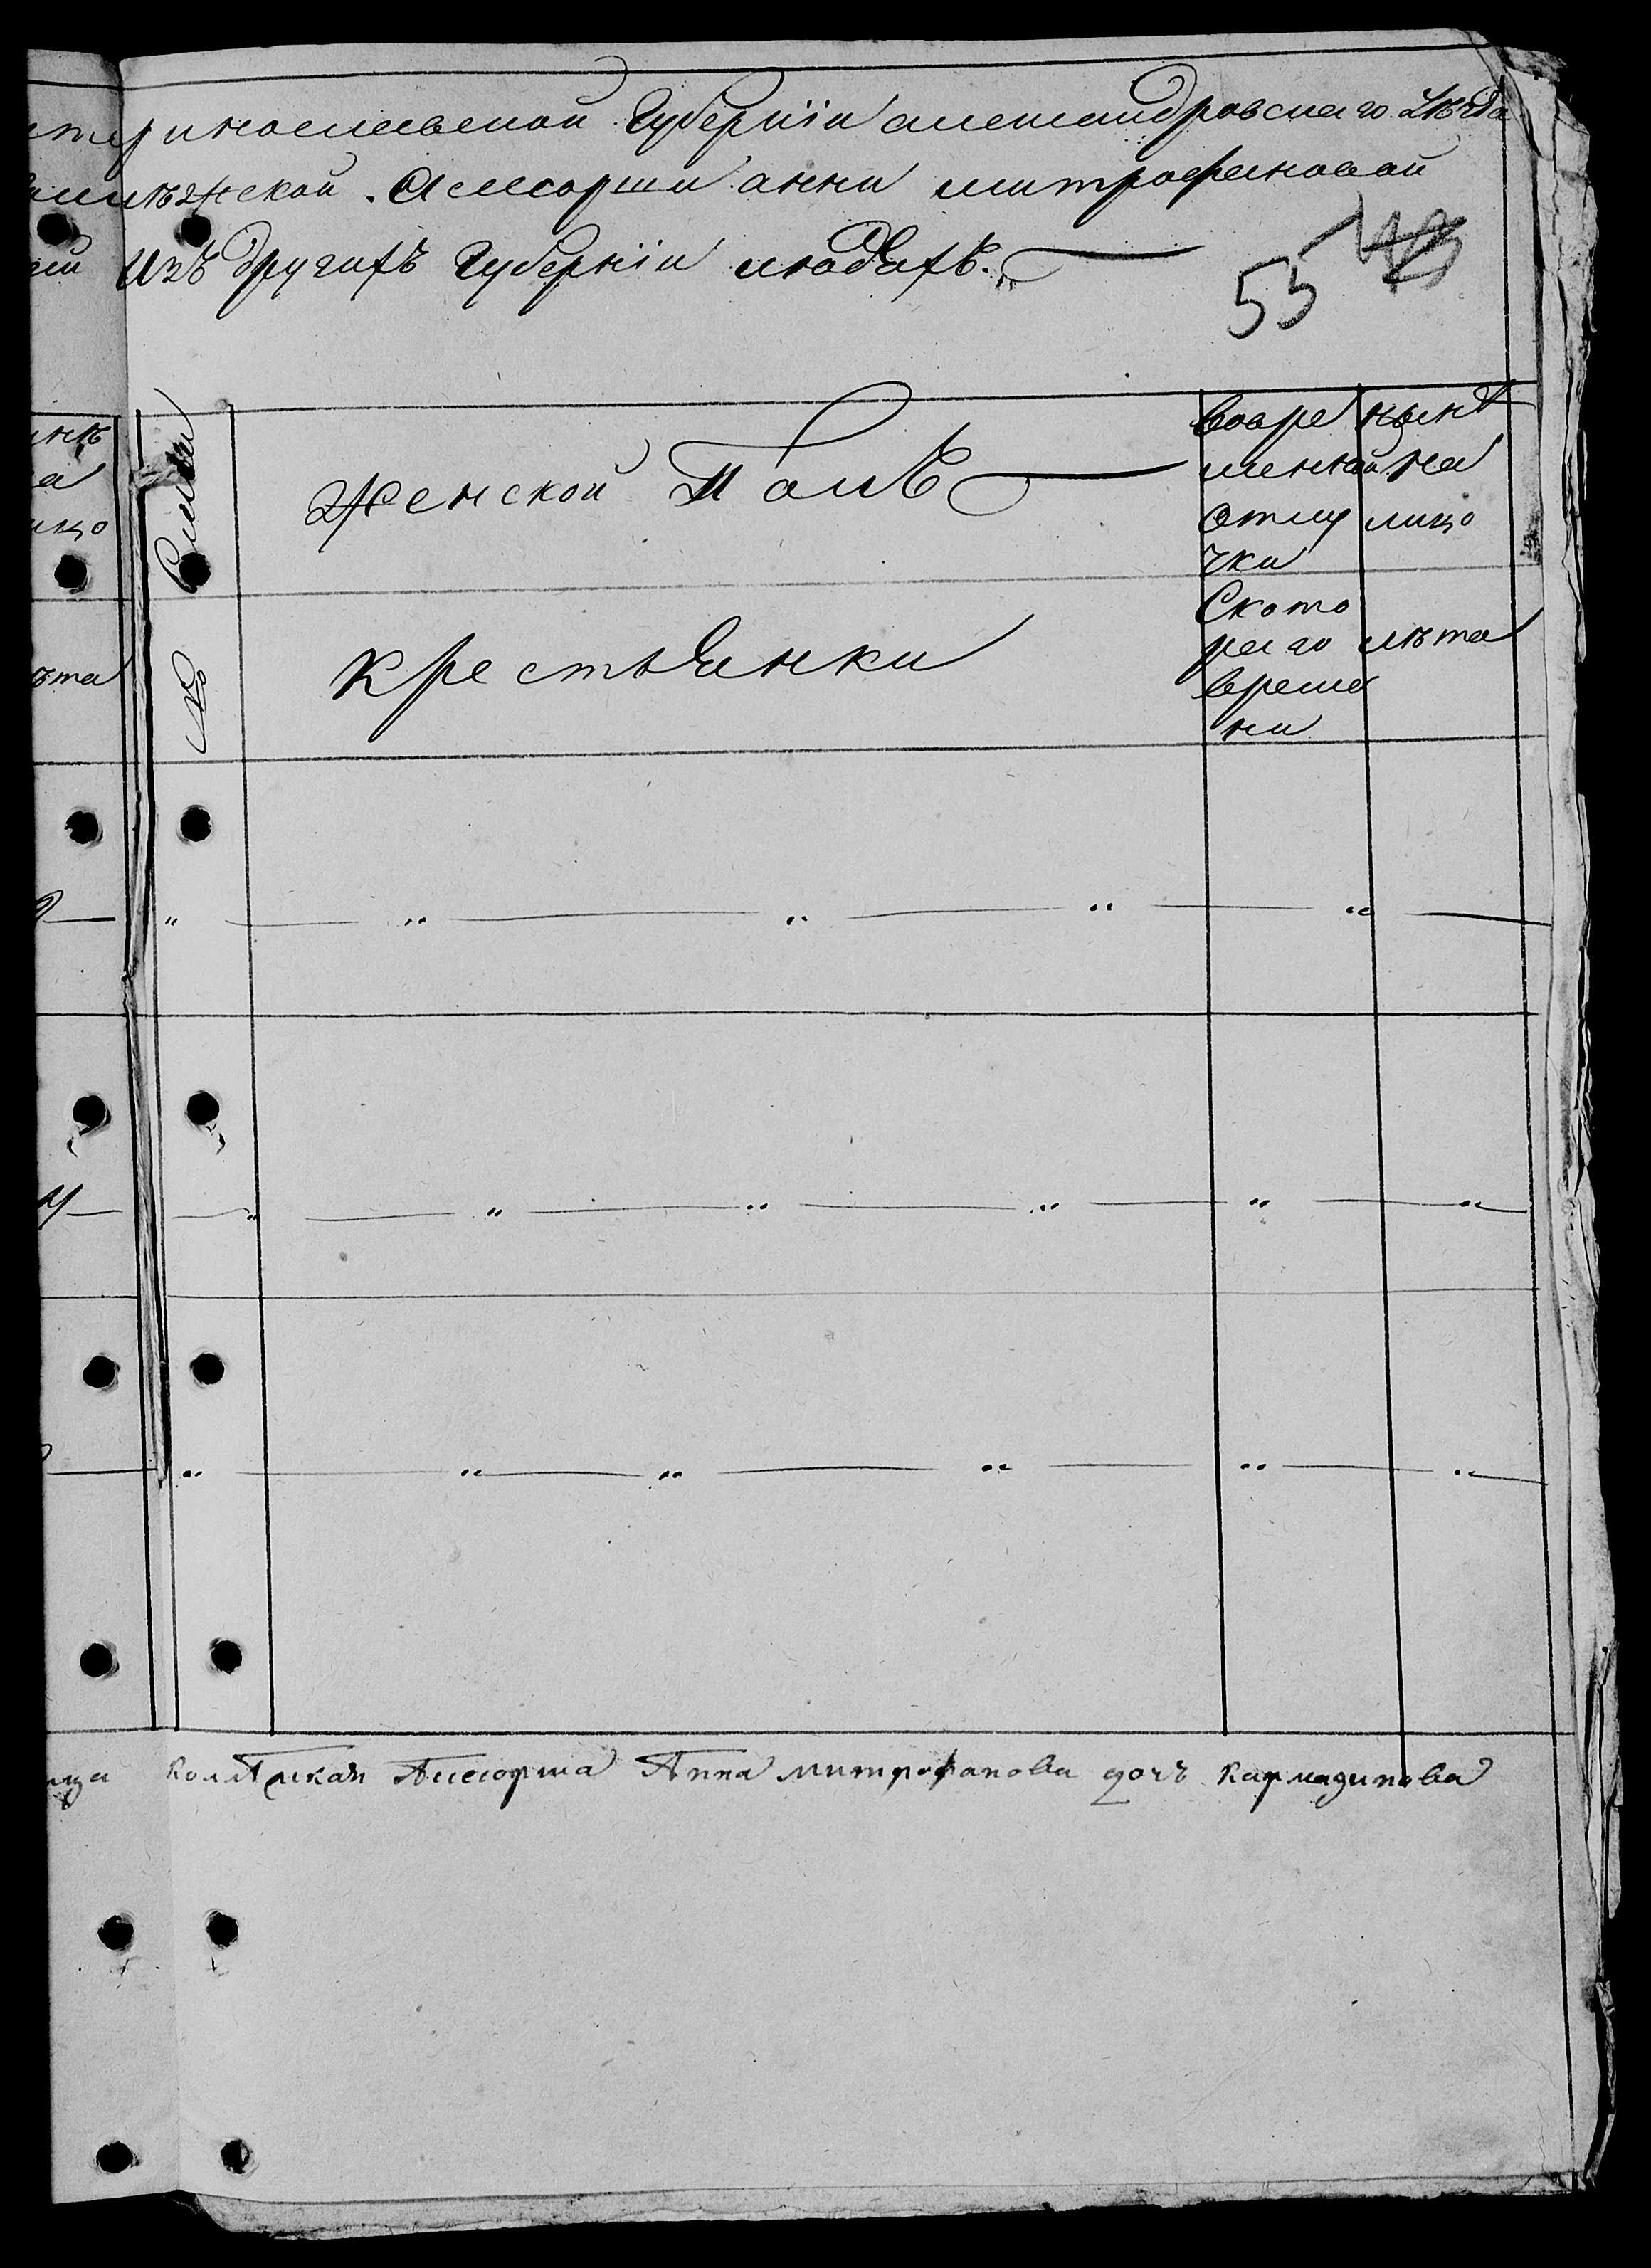 теринославской Губернiи александровскаго Уѣзда
лѣжской Асессорши анни митрофановой
Изъ другихъ Губернiи людяхъ.
55
№ Семьи
женской Полъ
Вовре
менной
отлу
чки
нынѣ
на
лицо
нѣ
а
ицо
крестьянки
Ското
раго
време
ни
лѣта
ѣта
Коллѣжская Ассесорша Анна митрофанова дочъ Кармазинова